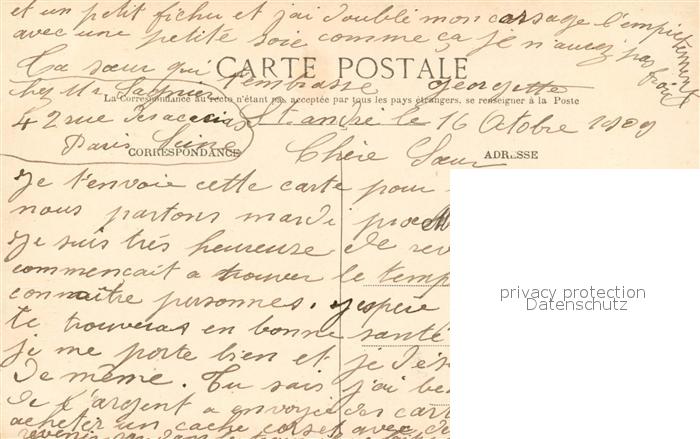 et un petit fichu et j'ai doublé mon corsage l'empiècement
avec une petite soie comme ça je n'aurez pas froid
Ta sœur qui t'embrasse Georgette
CARTE POSTALE
La Correspondance au recto n'étant pas acceptée par tous les pays étrangers, se renseigner à la Poste
chez Mr
42 rue des acacias St. andré le 16 Octobre 1909
Paris Seine
CORRESPONDANCE
ADRESSE
Chère Sœur
Je t'envoie cette carte pour
nous partons mardi
Je suis très heureuse de
commencait a trouver le temp
connaître personnes. j'espère
te trouveras en bonne santé
je me porte bien et je
de même. Tu sais j'ai
de l'argent a envoyé des
acheter un cache corset avec
privacy protection
Datenschutz